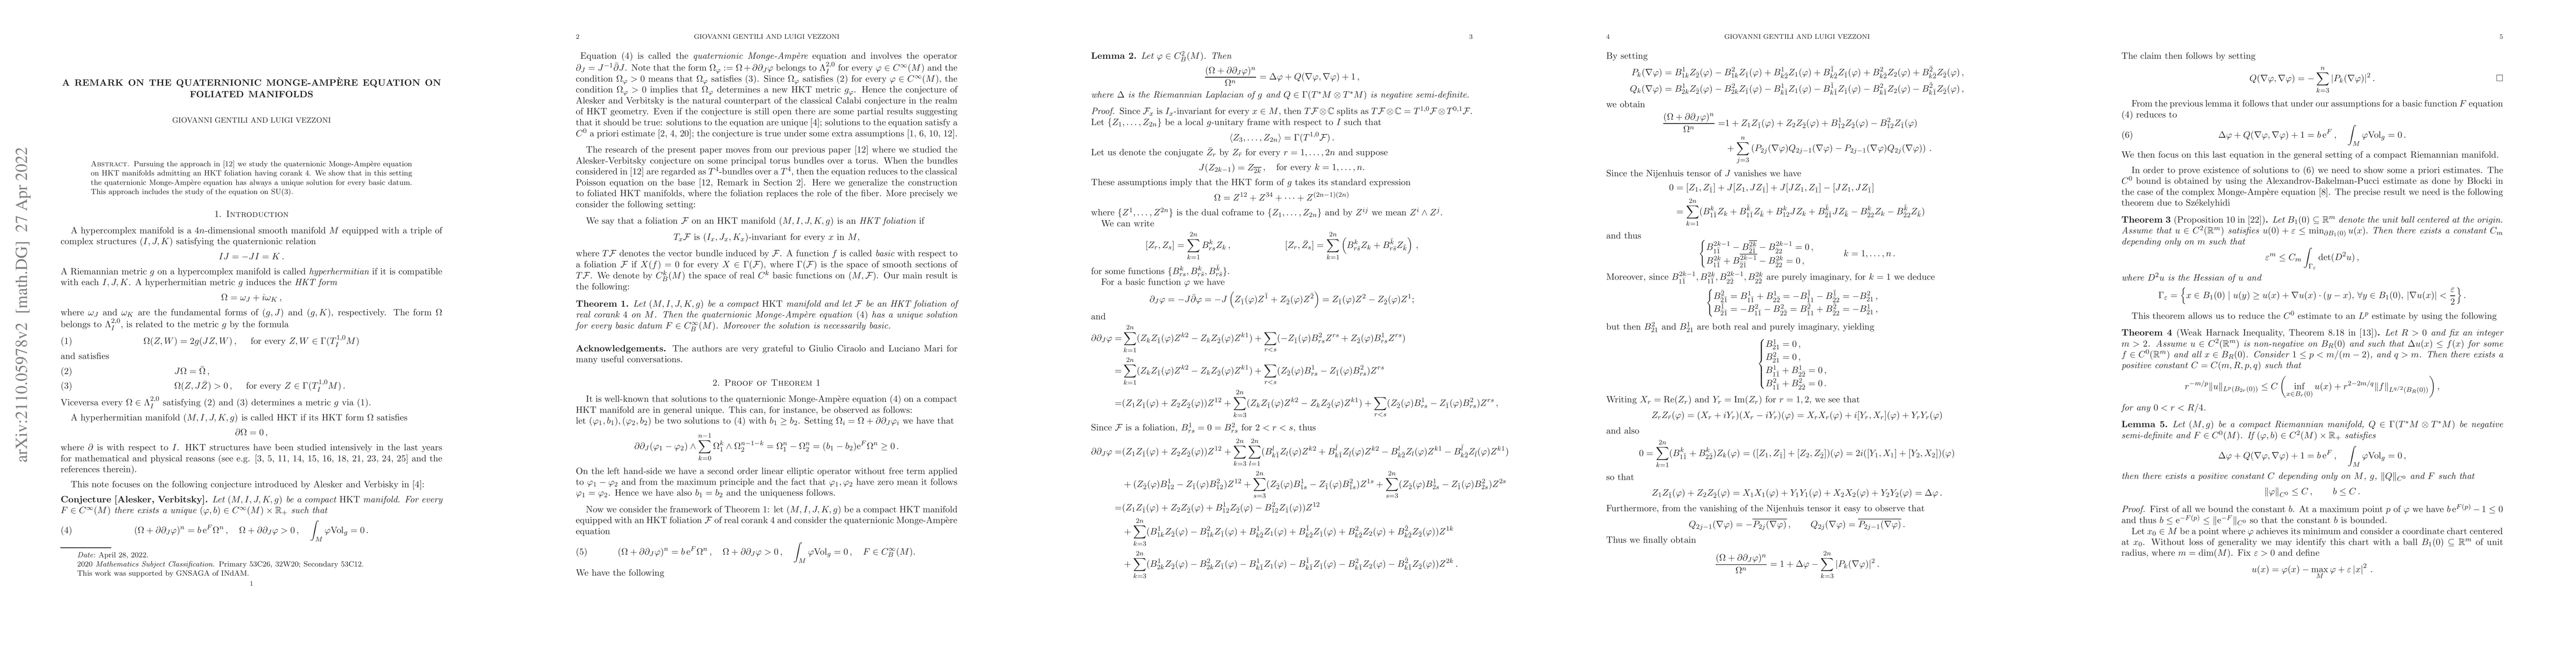 arXiv:2110.05978v2 [math.DG] 27 Apr 2022
A REMARK ON THE QUATERNIONIC MONGE-AMPÈRE EQUATION ON
FOLIATED MANIFOLDS
GIOVANNI GENTILI AND LUIGI VEZZONI
Abstract. Pursuing the approach in [12] we study the quaternionic Monge-Ampère equation
on HKT manifolds admitting an HKT foliation having corank 4. We show that in this setting
the quaternionic Monge-Ampère equation has always a unique solution for every basic datum.
This approach includes the study of the equation on SU(3).
1. Introduction
A hypercomplex manifold is a 4n-dimensional smooth manifold M equipped with a triple of
complex structures (I, J, K) satisfying the quaternionic relation
IJ = −JI = K .
A Riemannian metric g on a hypercomplex manifold is called hyperhermitian if it is compatible
with each I, J, K. A hyperhermitian metric g induces the HKT form
Ω = ω_J + iω_K ,
where ω_J and ω_K are the fundamental forms of (g, J) and (g, K), respectively. The form Ω
belongs to Λ_I^{2,0}, is related to the metric g by the formula
(1) Ω(Z, W) = 2g(JZ, W) , for every Z, W ∈ Γ(T_I^{1,0}M)
and satisfies
(2) JΩ = Ω̄ ,
(3) Ω(Z, JZ̄) > 0 , for every Z ∈ Γ(T_I^{1,0}M) .
Viceversa every Ω ∈ Λ_I^{2,0} satisfying (2) and (3) determines a metric g via (1).
A hyperhermitian manifold (M, I, J, K, g) is called HKT if its HKT form Ω satisfies
∂Ω = 0 ,
where ∂ is with respect to I. HKT structures have been studied intensively in the last years
for mathematical and physical reasons (see e.g. [3, 5, 11, 14, 15, 16, 18, 21, 23, 24, 25] and the
references therein).
This note focuses on the following conjecture introduced by Alesker and Verbisky in [4]:
Conjecture [Alesker, Verbitsky]. Let (M, I, J, K, g) be a compact HKT manifold. For every
F ∈ C^∞(M) there exists a unique (φ, b) ∈ C^∞(M) × ℝ_+ such that
(4) (Ω + ∂∂_Jφ)^n = b e^F Ω^n , Ω + ∂∂_Jφ > 0 , ∫_M φVol_g = 0 .
Date: April 28, 2022.
2020 Mathematics Subject Classification. Primary 53C26, 32W20; Secondary 53C12.
This work was supported by GNSAGA of INdAM.
1
2 GIOVANNI GENTILI AND LUIGI VEZZONI
Equation (4) is called the quaternionic Monge-Ampère equation and involves the operator
∂_J = J^{−1}∂̄J. Note that the form Ω_φ := Ω + ∂∂_Jφ belongs to Λ_I^{2,0} for every φ ∈ C^∞(M) and the
condition Ω_φ > 0 means that Ω_φ satisfies (3). Since Ω_φ satisfies (2) for every φ ∈ C^∞(M), the
condition Ω_φ > 0 implies that Ω_φ determines a new HKT metric g_φ. Hence the conjecture of
Alesker and Verbitsky is the natural counterpart of the classical Calabi conjecture in the realm
of HKT geometry. Even if the conjecture is still open there are some partial results suggesting
that it should be true: solutions to the equation are unique [4]; solutions to the equation satisfy a
C^0 a priori estimate [2, 4, 20]; the conjecture is true under some extra assumptions [1, 6, 10, 12].
The research of the present paper moves from our previous paper [12] where we studied the
Alesker-Verbitsky conjecture on some principal torus bundles over a torus. When the bundles
considered in [12] are regarded as T^4-bundles over a T^4, then the equation reduces to the classical
Poisson equation on the base [12, Remark in Section 2]. Here we generalize the construction
to foliated HKT manifolds, where the foliation replaces the role of the fiber. More precisely we
consider the following setting:
We say that a foliation F on an HKT manifold (M, I, J, K, g) is an HKT foliation if
T_xF is (I_x, J_x, K_x)-invariant for every x in M,
where TF denotes the vector bundle induced by F. A function f is called basic with respect to
a foliation F if X(f) = 0 for every X ∈ Γ(F), where Γ(F) is the space of smooth sections of
TF. We denote by C_B^k(M) the space of real C^k basic functions on (M, F). Our main result is
the following:
Theorem 1. Let (M, I, J, K, g) be a compact HKT manifold and let F be an HKT foliation of
real corank 4 on M. Then the quaternionic Monge-Ampère equation (4) has a unique solution
for every basic datum F ∈ C_B^∞(M). Moreover the solution is necessarily basic.
Acknowledgements. The authors are very grateful to Giulio Ciraolo and Luciano Mari for
many useful conversations.
2. Proof of Theorem 1
It is well-known that solutions to the quaternionic Monge-Ampère equation (4) on a compact
HKT manifold are in general unique. This can, for instance, be observed as follows:
let (φ_1, b_1), (φ_2, b_2) be two solutions to (4) with b_1 ≥ b_2. Setting Ω_i = Ω + ∂∂_Jφ_i we have that
∂∂_J(φ_1 − φ_2) ∧ ∑_{k=0}^{n−1} Ω_1^k ∧ Ω_2^{n−1−k} = Ω_1^n − Ω_2^n = (b_1 − b_2)e^F Ω^n ≥ 0 .
On the left hand-side we have a second order linear elliptic operator without free term applied
to φ_1 − φ_2 and from the maximum principle and the fact that φ_1, φ_2 have zero mean it follows
φ_1 = φ_2. Hence we have also b_1 = b_2 and the uniqueness follows.
Now we consider the framework of Theorem 1: let (M, I, J, K, g) be a compact HKT manifold
equipped with an HKT foliation F of real corank 4 and consider the quaternionic Monge-Ampère
equation
(5) (Ω + ∂∂_Jφ)^n = b e^F Ω^n , Ω + ∂∂_Jφ > 0 , ∫_M φVol_g = 0 , F ∈ C_B^∞(M).
We have the following
3
Lemma 2. Let φ ∈ C_B^2(M). Then
(Ω + ∂∂_Jφ)^n / Ω^n = Δφ + Q(∇φ, ∇φ) + 1 ,
where Δ is the Riemannian Laplacian of g and Q ∈ Γ(T*M ⊗ T*M) is negative semi-definite.
Proof. Since F_x is I_x-invariant for every x ∈ M, then TF⊗ℂ splits as TF⊗ℂ = T^{1,0}F⊗T^{0,1}F.
Let {Z_1, . . . , Z_{2n}} be a local g-unitary frame with respect to I such that
⟨Z_3, . . . , Z_{2n}⟩ = Γ(T^{1,0}F) .
Let us denote the conjugate Z̄_r by Z_r̄ for every r = 1, . . . , 2n and suppose
J(Z_{2k−1}) = Z_{\overline{2k}} , for every k = 1, . . . , n.
These assumptions imply that the HKT form of g takes its standard expression
Ω = Z^{12} + Z^{34} + · · · + Z^{(2n−1)(2n)}
where {Z^1, . . . , Z^{2n}} is the dual coframe to {Z_1, . . . , Z_{2n}} and by Z^{ij} we mean Z^i ∧ Z^j.
We can write
[Z_r, Z_s] = ∑_{k=1}^{2n} B_{rs}^k Z_k , [Z_r, Z̄_s] = ∑_{k=1}^{2n} (B_{rs̄}^k Z_k + B_{rs̄}^{k̄} Z_k̄) ,
for some functions {B_{rs}^k, B_{rs̄}^k, B_{rs̄}^{k̄}}.
For a basic function φ we have
∂_Jφ = −J∂̄φ = −J (Z_1̄(φ)Z^1̄ + Z_2̄(φ)Z^2̄) = Z_1̄(φ)Z^2 − Z_2̄(φ)Z^1;
and
∂∂_Jφ = ∑_{k=1}^{2n} (Z_kZ_1̄(φ)Z^{k2} − Z_kZ_2̄(φ)Z^{k1}) + ∑_{r<s} (−Z_1̄(φ)B_{rs}^2 Z^{rs} + Z_2̄(φ)B_{rs}^1 Z^{rs})
= ∑_{k=1}^{2n} (Z_kZ_1̄(φ)Z^{k2} − Z_kZ_2̄(φ)Z^{k1}) + ∑_{r<s} (Z_2̄(φ)B_{rs}^1 − Z_1̄(φ)B_{rs}^2)Z^{rs}
=(Z_1Z_1̄(φ) + Z_2Z_2̄(φ))Z^{12} + ∑_{k=3}^{2n} (Z_kZ_1̄(φ)Z^{k2} − Z_kZ_2̄(φ)Z^{k1}) + ∑_{r<s} (Z_2̄(φ)B_{rs}^1 − Z_1̄(φ)B_{rs}^2)Z^{rs} ,
Since F is a foliation, B_{rs}^1 = 0 = B_{rs}^2 for 2 < r < s, thus
4 GIOVANNI GENTILI AND LUIGI VEZZONI
By setting
we obtain
Since the Nijenhuis tensor of J vanishes we have
0 = [Z_1, Z_1̄] + J[Z_1, JZ_1̄] + J[JZ_1, Z_1̄] − [JZ_1, JZ_1̄]
and thus
k = 1, . . . , n .
but then B_{21̄}^2 and B_{21̄}^1 are both real and purely imaginary, yielding
Writing X_r = Re(Z_r) and Y_r = Im(Z_r) for r = 1, 2, we see that
Z_rZ_r̄(φ) = (X_r + iY_r)(X_r − iY_r)(φ) = X_rX_r(φ) + i[Y_r, X_r](φ) + Y_rY_r(φ)
and also
so that
Z_1Z_1̄(φ) + Z_2Z_2̄(φ) = X_1X_1(φ) + Y_1Y_1(φ) + X_2X_2(φ) + Y_2Y_2(φ) = Δφ .
Furthermore, from the vanishing of the Nijenhuis tensor it easy to observe that
Thus we finally obtain
(Ω + ∂∂_Jφ)^n / Ω^n = 1 + Δφ − ∑_{k=3}^{2n} |P_k(∇φ)|^2 .
5
The claim then follows by setting
Q(∇φ, ∇φ) = − ∑_{k=3}^{n} |P_k(∇φ)|^2 . □
From the previous lemma it follows that under our assumptions for a basic function F equation
(4) reduces to
(6) Δφ + Q(∇φ, ∇φ) + 1 = b e^F , ∫_M φVol_g = 0 .
We then focus on this last equation in the general setting of a compact Riemannian manifold.
In order to prove existence of solutions to (6) we need to show some a priori estimates. The
C^0 bound is obtained by using the Alexandrov-Bakelman-Pucci estimate as done by Blocki in
the case of the complex Monge-Ampère equation [8]. The precise result we need is the following
theorem due to Székelyhidi
Theorem 3 (Proposition 10 in [22]). Let B_1(0) ⊆ ℝ^m denote the unit ball centered at the origin.
Assume that u ∈ C^2(ℝ^m) satisfies u(0) + ε ≤ min_{∂B_1(0)} u(x). Then there exists a constant C_m
depending only on m such that
ε^m ≤ C_m ∫_{Γ_ε} det(D^2u) ,
where D^2u is the Hessian of u and
Γ_ε = {x ∈ B_1(0) | u(y) ≥ u(x) + ∇u(x) · (y − x), ∀y ∈ B_1(0), |∇u(x)| < ε/2} .
This theorem allows us to reduce the C^0 estimate to an L^p estimate by using the following
Theorem 4 (Weak Harnack Inequality, Theorem 8.18 in [13]). Let R > 0 and fix an integer
m > 2. Assume u ∈ C^2(ℝ^m) is non-negative on B_R(0) and such that Δu(x) ≤ f(x) for some
f ∈ C^0(ℝ^m) and all x ∈ B_R(0). Consider 1 ≤ p < m/(m − 2), and q > m. Then there exists a
positive constant C = C(m, R, p, q) such that
r^{−m/p}‖u‖_{L^p(B_{2r}(0))} ≤ C ( inf_{x∈B_r(0)} u(x) + r^{2−2m/q}‖f‖_{L^{q/2}(B_R(0))} ) ,
for any 0 < r < R/4.
Lemma 5. Let (M, g) be a compact Riemannian manifold, Q ∈ Γ(T*M ⊗ T*M) be negative
semi-definite and F ∈ C^0(M). If (φ, b) ∈ C^2(M) × ℝ_+ satisfies
Δφ + Q(∇φ, ∇φ) + 1 = b e^F , ∫_M φVol_g = 0 .
then there exists a positive constant C depending only on M, g, ‖Q‖_{C^0} and F such that
‖φ‖_{C^0} ≤ C , b ≤ C .
Proof. First of all we bound the constant b. At a maximum point p of φ we have b e^{F(p)} − 1 ≤ 0
and thus b ≤ e^{−F(p)} ≤ ‖e^{−F}‖_{C^0} so that the constant b is bounded.
Let x_0 ∈ M be a point where φ achieves its minimum and consider a coordinate chart centered
at x_0. Without loss of generality we may identify this chart with a ball B_1(0) ⊆ ℝ^m of unit
radius, where m = dim(M). Fix ε > 0 and define
u(x) = φ(x) − max_M φ + ε |x|^2 .